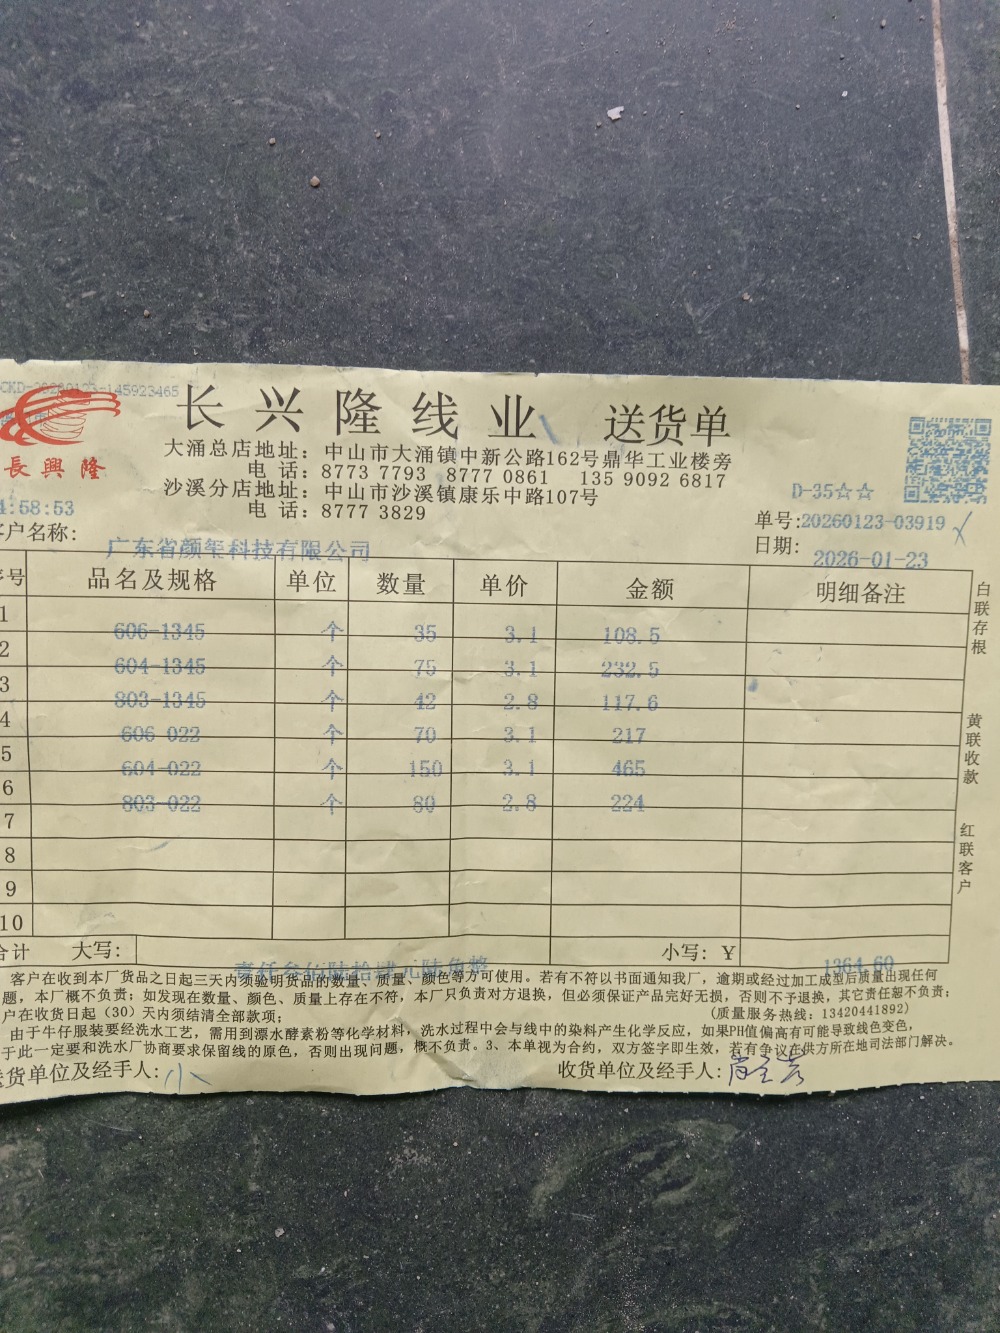 CKD-20260123-145923465
长兴隆线业 送货单
長興隆
大涌总店地址：中山市大涌镇中新公路162号鼎华工业楼旁
电 话：8773 7793 8777 0861 135 9092 6817
沙溪分店地址：中山市沙溪镇康乐中路107号
电 话：8777 3829
D-35☆☆
:58:53
单号:20260123-03919
客户名称：
广东省颜玺科技有限公司
日期：2026-01-23
序号 品名及规格 单位 数量 单价 金额 明细备注
1 606-1345 个 35 3.1 108.5
2 604-1345 个 75 3.1 232.5
3 803-1345 个 42 2.8 117.6
4 606-022 个 70 3.1 217
5 604-022 个 150 3.1 465
6 803-022 个 80 2.8 224
7
8
9
10
合计 大写： 壹仟叁佰陆拾肆元陆角整 小写：￥ 1364.60
白联存根
黄联收款
红联客户
客户在收到本厂货品之日起三天内须验明货品的数量、质量、颜色等方可使用。若有不符以书面通知我厂，逾期或经过加工成型后质量出现任何
题，本厂概不负责；如发现在数量、颜色、质量上存在不符，本厂只负责对方退换，但必须保证产品完好无损，否则不予退换，其它责任恕不负责；
户在收货日起（30）天内须结清全部款项；
（质量服务热线：13420441892）
由于牛仔服装要经洗水工艺，需用到漂水酵素粉等化学材料，洗水过程中会与线中的染料产生化学反应，如果PH值偏高有可能导致线色变色，
于此一定要和洗水厂协商要求保留线的原色，否则出现问题，概不负责。3、本单视为合约，双方签字即生效，若有争议在供方所在地司法部门解决。
送货单位及经手人：小
收货单位及经手人：